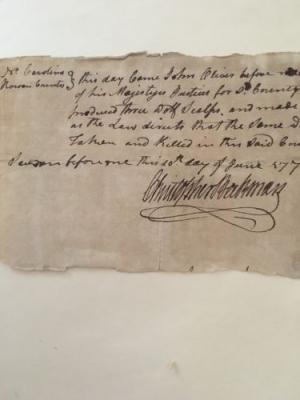 No Carolina
Rowan County
this day Came John Oliver before
of his Majestyes Justices for Sd County
produced three Wolf Scalps, and made
as the Law directs that the Same
Taken and Killed in this Said
Sworn before me this 20th day of June 177
Christopher Beekman